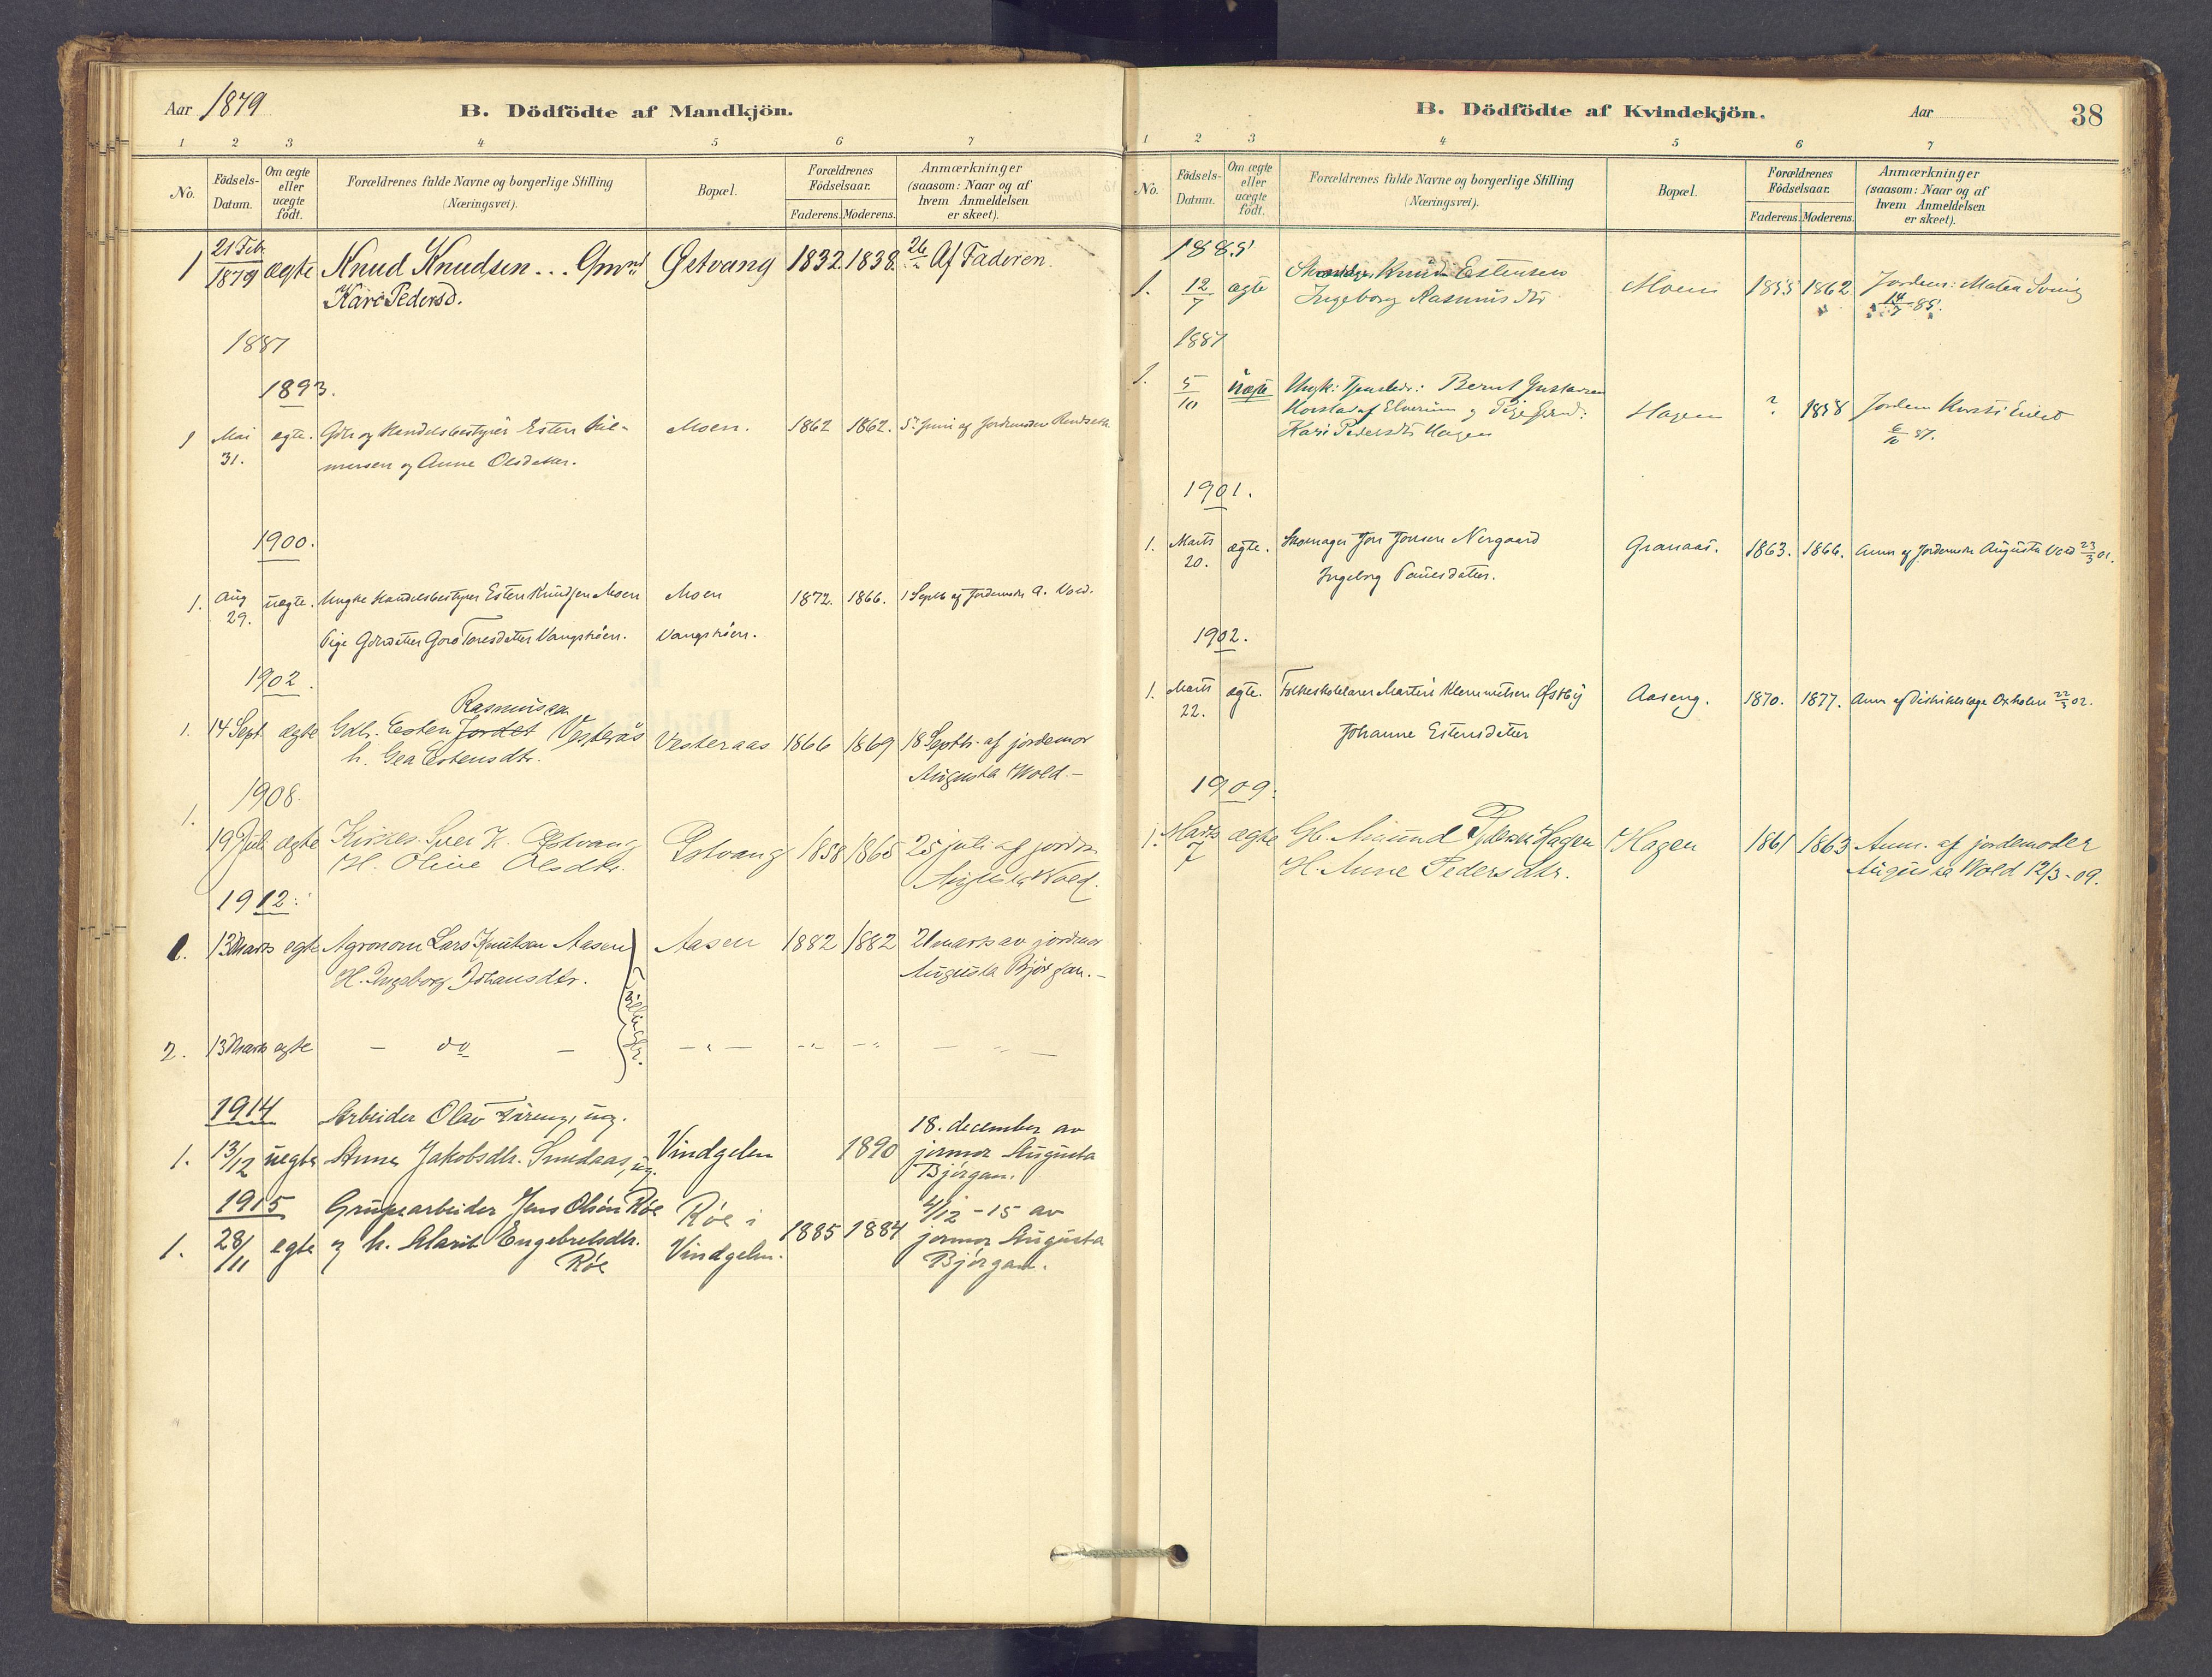 Aar 1879
B. Dödfödte af Mandkjön.
1 2 3 4 5 6 7
No.
Födsels-Datum.
Om ægte eller uægte födt.
Forældrenes fulde Navne og borgerlige Stilling
(Næringsvei).
Bopæl.
Forældrenes Födselsaar.
Faderens. Moderens.
Anmærkninger
(saasom: Naar og af
hvem Anmeldelsen
er skeet).
1 21 Febr 1879 ægte Knud Knudsen Gmnd Estvang 1832 1838 26/2 Af Faderen.
Kari Pedersd.
1887
1893.
1 Mai 31. egte. Gdr og Handelsbestyrer Esten Moen. 1862 1862. 5te Juni af Jordemoder
og Anne Olsdatter.
1900.
1. Aug 29. uægte. Ungke Handelsbestyrer Esten Knudsen Moen Moen 1872. 1866. 1 Septb af Jordemoder A. Vold.
Pige Gdrdatter Goro Toresdatter Vangsköien. Vangsköien.
1902.
Rasmussen
1. 14 Sept. ægte Gdbr. Esten Jordet Vesterås Vesteraas 1866 1869 18 Septbr. af jordemor
h. Gea Estensdtr. Augusta Wold.-
1908.
1. 19 Juli ægte Kirkes. Iver K. Estvang Estvang 1858 1865 25 juli af jordm
H. Oline Olsdtr. Augusta Wold.
1912:
1. 13 Marts egte Agronom Lars Knutsen Aasen Aasen 1882 1882 21 marts av jordmor
H. Ingeborg Johansdtr. Augusta Bjørgan.-
2. 13 Marts egte - do -
1914 Arbeider Olav ug.
1. 13/12 uegte Anne Jakobsdtr. Smedaas, ug. Vindgelen 1890 18. december av
jormor Augusta
Bjørgan.
1915 Grubearbeider Jens Olsen Røe Røe i
1. 28/11 egte og h. Marit Engebretsdtr. Røe Vindgelen. 1885 1884 4/12 - 15 av
jormor Augusta
Bjørgan.
B. Dödfödte af Kvindekjön.
Aar
38
1 2 3 4 5 6 7
No.
Födsels-Datum.
Om ægte eller uægte födt.
Forældrenes fulde Navne og borgerlige Stilling
(Næringsvei).
Bopæl.
Forældrenes Födselsaar.
Faderens. Moderens.
Anmærkninger
(saasom: Naar og af
hvem Anmeldelsen
er skeet).
1885
1. 12/7 ægte Knud Estensen Moen 1855 1862 Jordem: Matea
Ingeborg Rasmusdtr 14/7 85.
1887
1. 5/10 uægte Ungk: Bernt Gustavsen
af Elverum og Pige Hagen ? 1858 Jordem
Kari Pedersdtr Hagen 6/10 87.
1901.
1. Marts 20. ægte. Skomager Jon Jonsen Nergaard Granaas. 1863. 1866. Anm af Jordemoder Augusta Vold 23/3 01.
Ingebrg Paulsdatter.
1902.
1. Marts 22. ægte. Folkeskolelærer Martin Klemmetsen Østby Aaseng. 1870. 1877. Anm af Distriktslæge Oxholm 22/3 02.
Johanne Estensdatter
1909.
1. Marts 7 ægte Gb. Amund Hagen Hagen 1861 1863 Anm. af jordemoder
H. Anne Pedersdtr. Augusta Wold 12/3-09.